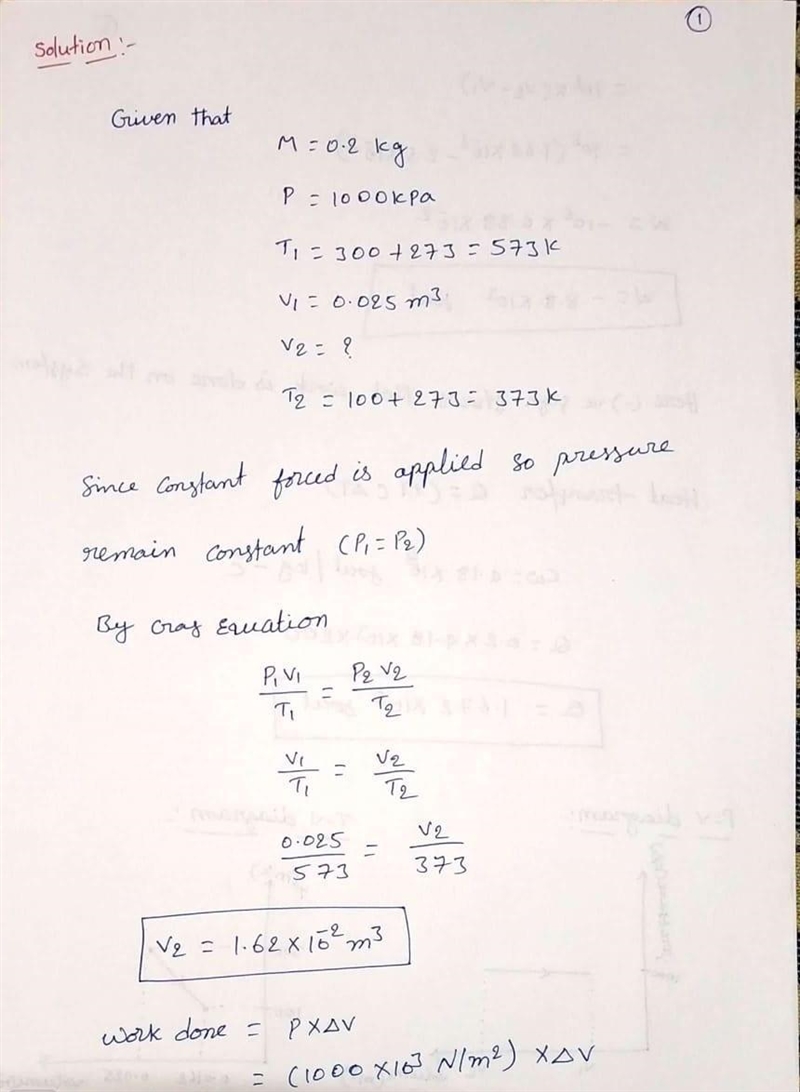 ①
Solution :-
Given that
M = 0.2 kg
P = 1000 kPa
T₁ = 300 + 273 = 573 K
V₁ = 0.025 m³
V₂ = ?
T₂ = 100 + 273 = 373 K
Since constant forced is applied so pressure
remain constant (P₁ = P₂)
By Gras Equation
P₁V₁/T₁ = P₂V₂/T₂
V₁/T₁ = V₂/T₂
0.025/573 = V₂/373
V₂ = 1.62 × 10⁻² m³
Work done = P × ΔV
= (1000 × 10³ N/m²) × ΔV